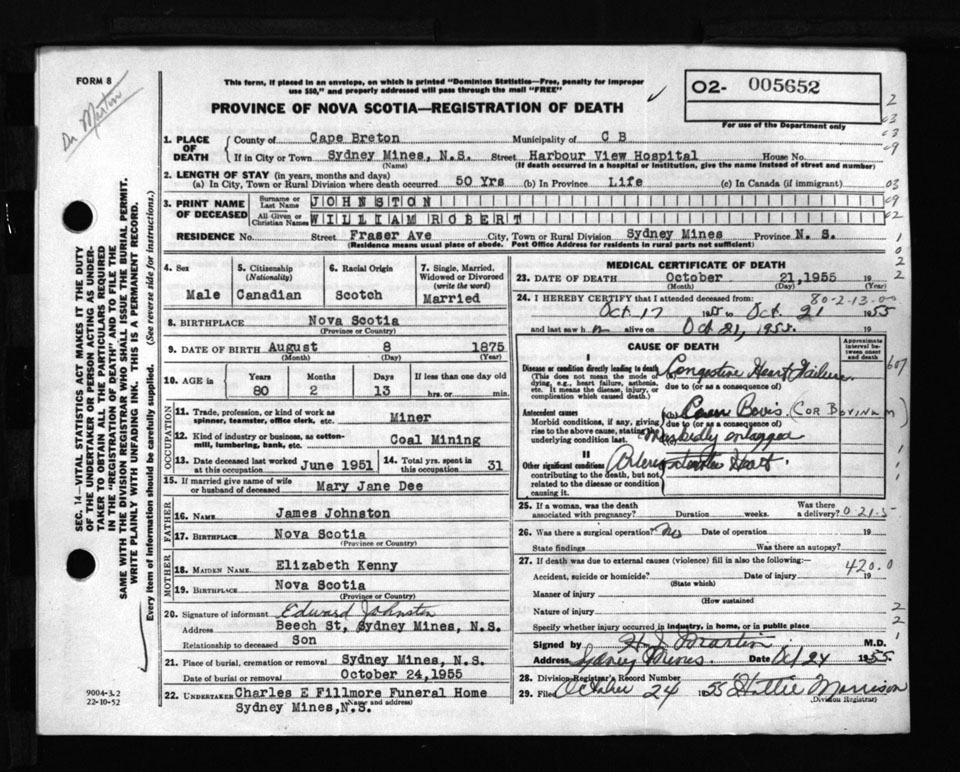 FORM 8
Dr Martin
This form, if placed in an envelope, on which is printed "Dominion Statistics—Free, penalty for improper
use $50," and properly addressed will pass through the mail "FREE"
PROVINCE OF NOVA SCOTIA—REGISTRATION OF DEATH
02- 005652
For use of the Department only
1. PLACE OF DEATH
County of Cape Breton Municipality of C B
If in City or Town Sydney Mines, N.S. Street Harbour View Hospital House No.
(Name) (If death occurred in a hospital or institution, give the name instead of street and number)
2. LENGTH OF STAY (in years, months and days)
(a) In City, Town or Rural Division where death occurred 50 Yrs (b) In Province Life (c) In Canada (if immigrant)
3. PRINT NAME OF DECEASED
Surname or Last Name JOHNSTON
All Given or Christian Names WILLIAM ROBERT
RESIDENCE No. Street Fraser Ave City, Town or Rural Division Sydney Mines Province N. S.
(Residence means usual place of abode. Post Office Address for residents in rural parts not sufficient)
4. Sex
Male
5. Citizenship (Nationality)
Canadian
6. Racial Origin
Scotch
7. Single, Married, Widowed or Divorced (write the word)
Married
8. BIRTHPLACE Nova Scotia
(Province or Country)
9. DATE OF BIRTH August 8 1875
(Month) (Day) (Year)
10. AGE in Years Months Days If less than one day old
80 2 13 hrs. or min.
OCCUPATION
11. Trade, profession, or kind of work as spinner, teamster, office clerk, etc. Miner
12. Kind of industry or business, as cotton-mill, lumbering, bank, etc. Coal Mining
13. Date deceased last worked at this occupation June 1951 14. Total yrs. spent in this occupation 31
15. If married give name of wife or husband of deceased Mary Jane Dee
FATHER
16. NAME James Johnston
17. BIRTHPLACE Nova Scotia
(Province or Country)
MOTHER
18. MAIDEN NAME Elizabeth Kenny
19. BIRTHPLACE Nova Scotia
(Province or Country)
20. Signature of informant Edward Johnston
Address Beech St, Sydney Mines, N.S.
Relationship to deceased Son
21. Place of burial, cremation or removal Sydney Mines, N.S.
Date of burial or removal October 24,1955
22. UNDERTAKER Charles E Fillmore Funeral Home
(Name and address)
Sydney Mines,N.S.
MEDICAL CERTIFICATE OF DEATH
23. DATE OF DEATH October 21,1955 19
(Month) (Day) (Year)
80-2-13-00
24. I HEREBY CERTIFY that I attended deceased from:
Oct 17 1955 to Oct. 21 1955
and last saw h m alive on Oct 21, 1955. 19
CAUSE OF DEATH
Approximate interval between onset and death
I
Disease or condition directly leading to death
(This does not mean the mode of dying, e.g., heart failure, asthenia, etc. It means the disease, injury, or complication which caused death.)
Congestive Heart Failure
due to (or as a consequence of)
607
Antecedent causes
Morbid conditions, if any, giving rise to the above cause, stating the underlying condition last.
Bovis (COR BOVINUM)
due to (or as a consequence of)
Markedly enlarged
II
Other significant conditions
contributing to the death, but not related to the disease or condition causing it.
Heart.
25. If a woman, was the death associated with pregnancy? Duration weeks. Was there a delivery?
0-21-5
26. Was there a surgical operation? No Date of operation 19
State findings Was there an autopsy?
27. If death was due to external causes (violence) fill in also the following:—
420.0
Accident, suicide or homicide? Date of injury 19
(State which)
Manner of injury
(How sustained
Nature of injury
Specify whether injury occurred in industry, in home, or in public place
Signed by H. J. Martin M.D.
Address Sydney Mines. Date Oct 24 1955
28. Division Registrar's Record Number
29. Filed October 24 1955 Hattie Morrison
(Division Registrar)
SEC. 14—VITAL STATISTICS ACT MAKES IT THE DUTY
OF THE UNDERTAKER OR PERSON ACTING AS UNDER-
TAKER TO OBTAIN ALL THE PARTICULARS REQUIRED
IN THE "REGISTRATION OF DEATH" AND TO FILE THE
SAME WITH THE DIVISION REGISTRAR WHO SHALL ISSUE THE BURIAL PERMIT.
WRITE PLAINLY WITH UNFADING INK. THIS IS A PERMANENT RECORD.
Every item of information should be carefully supplied. (See reverse side for instructions.)
9004-3.2
22-10-52